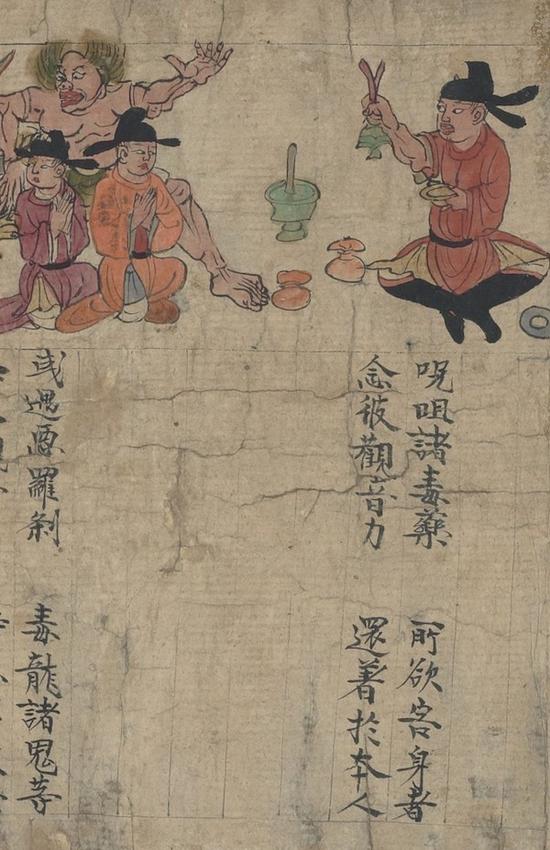 呪咀諸毒藥 所欲害身者
念彼觀音力 還著於本人
或遇惡羅刹 毒龍諸鬼等